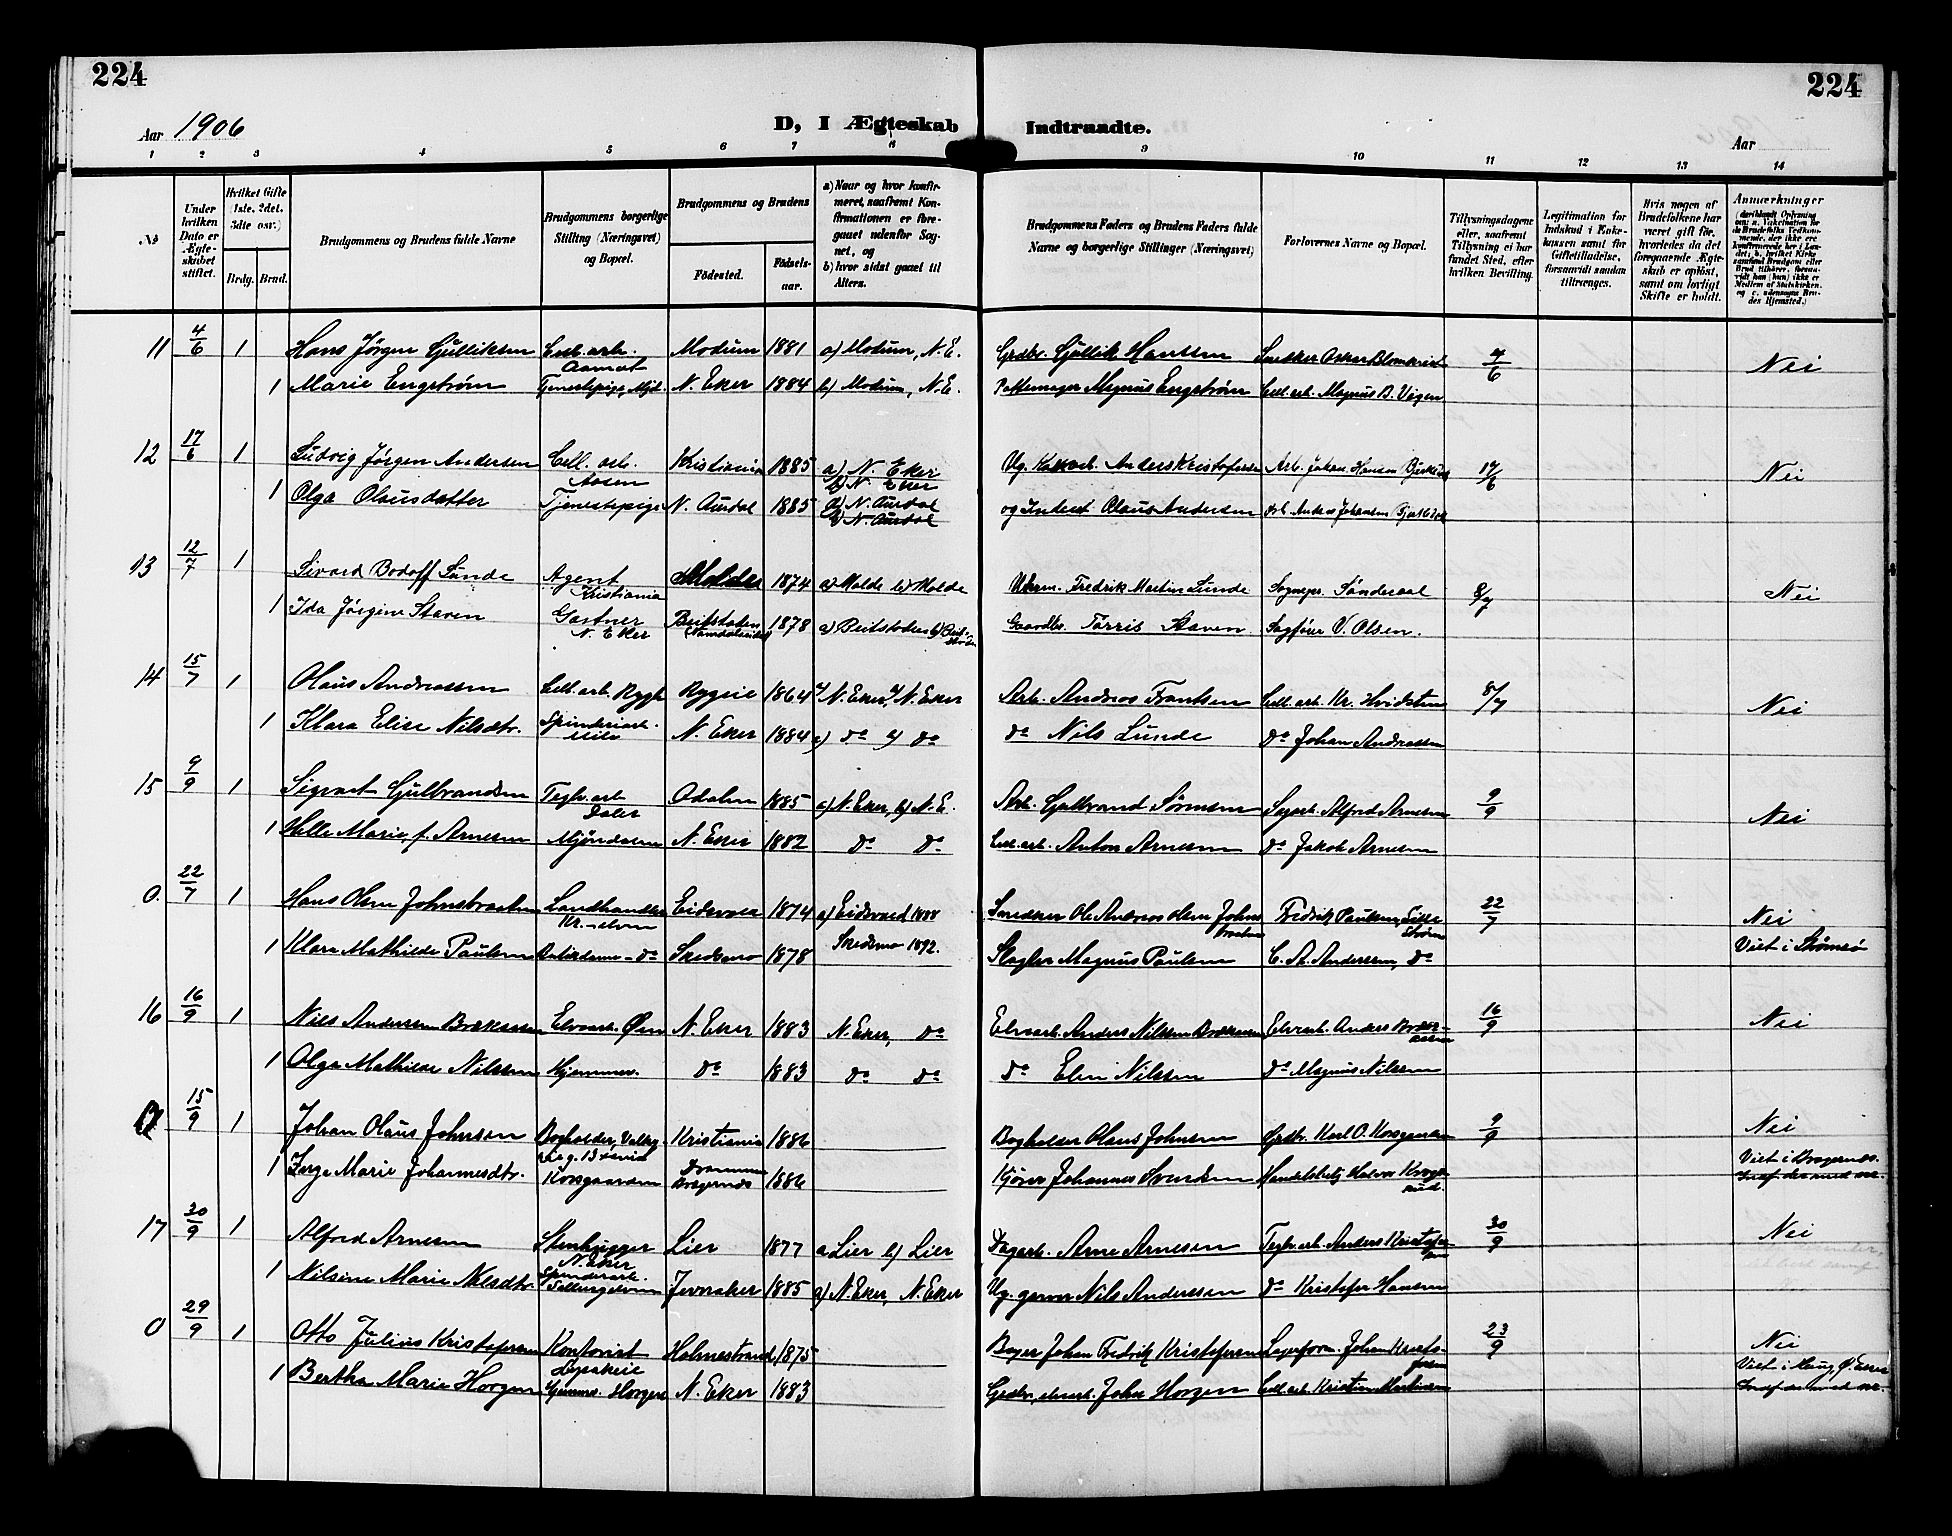 224
224
Aar 1906
D, I Ægteskab Indtraadte.
Aar
1 2 3 4 5 6 7 8 9 10 11 12 13 14
№
Under hvilken Dato er Ægteskabet stiftet.
Hvilket Gifte (1ste, 2det, 3dte osv.)
Brdg. Brud.
Brudgommens og Brudens fulde Navne
Brudgommens borgerlige Stilling (Næringsvei) og Bopæl.
Brudgommens og Brudens
Fødested.
Fødselsaar.
a) Naar og hvor konfirmeret, saafremt Konfirmationen er foregaaet udenfor Sognet, og
b) hvor sidst gaaet til Alters.
Brudgommens Faders og Brudens Faders fulde Navne og borgerlige Stillinger (Næringsvei)
Forlovernes Navne og Bopæl.
Tillysningsdagene eller, saafremt Tillysning ei har fundet Sted, efter hvilken Bevilling.
Legitimation for Indskud i Enkekassen samt for Giftetilladelse, forsaavidt saadan tiltrænges.
Hvis nogen af Brudefolkene har været gift før, hvorledes da det foregaaende Ægteskab er opløst, samt om lovligt Skifte er holdt.
Anmærkninger
11 4/6 1 Hans Jørgen Gulliksen Cell. arb. Modum 1881 a) Modum, N. E. Grdbr. Gullik Hanssen Snedker Oskar Blomkvist 4/6 Nei
Aamot
1 Marie Engstrøm Tjenestepige, Mjø. N. Eker 1884 b) Modum, N. E. Pottemager Magnus Engstrøm Cell. arb. Magnus B. Vigen
12 17/6 1 Ludvig Jørgen Andersen Cell. arb. Kristiania 1885 a) N. Eker Ug. Anders Kristofersen Arb. Johan Hansen 17/6 Nei
Aasen b) N. Eker
1 Olga Olausdatter Tjenestepige N. Aurdal 1885 a) N. Aurdal og Inderst Olaus Andersen Arb. Anders Johansen
b) N. Aurdal
13 12/7 1 Sivard Bodoff Sunde Agent Molde 1874 a) Molde b) Molde Uhrm. Fredrik Martin Sunde Sognepr. Sønderaal 8/7 Nei
Kristiania
1 Ida Jørgine Staven Gartner Beitstaden 1878 a) Beitstaden b) Beitstaden Gaardbr. Tarris Staven Sagfører V. Olsen.
N. Eker (Namdaleidet)
14 15/7 1 Olaus Andreassen Cell. arb. Rygh Rygeie 1864 a) N. Eker, b) N. Eker Arb. Andreas Frantsen Cell. arb. Kr. Hvidsten 8/7 Nei
1 Klara Elise Nilsdtr. Spinderiarb. N. Eker 1884 a) do b) do do Nils Lunde do Johan Andreassen
15 9/9 1 Sigvart Gulbrandsen Teglv. arb. Odalen 1885 a) N. Eker, b) N. E. Arb. Gulbrand Sørensen Sagarb. Alfred Arnesen 9/9 Nei
1 Helle Marie f. Arnesen Mjøndalen N. Eker 1882 do do Cell. arb. Anton Arnesen do Jakob Arnesen
0. 22/7 1 Hans Olsen Johnsbraaten Landhandler Eidsvold 1874 a) Eidsvold 1888 Snedker Ole Andreas Olsen Johnsbraaten Fredrik Paulsen, Lillestrøm 22/7 Nei
1 Klara Mathilde Paulsen do Skedsmo 1878 Skedsmo 1892. Slagter Magnus Paulsen C. A. Anderssen, do Viet i Strømsø
16 16/9 1 Nils Andersen Brækaasen Elvearb. Øren N. Eker 1883 N. Eker, do Elvearb. Anders Nilssen Brækaasen Elvearb. Anders Brækaasen 16/9 Nei
1 Olga Mathilde Nilssen Hjemmev. do 1883 do do do Elen Nilssen do Magnus Nilssen
0 15/9 1 Johan Olaus Johnsen Bogholder, Kristiania 1886 Bogholder Olaus Johnsen Grdbr. Karl O. Korsgaarden 9/9 Nei
1 Inga Marie Johannesdtr. Korsgaarden Drammen Bragernes 1886 Kjører Johannes Svendsen Handelsbetj. Halvor Viet i Bragernes.
17 30/9 1 Alfred Arnesen Stenhugger Lier 1877 a Lier b) Lier Dagarb. Arne Arnesen Teglv. arb. Anders Kristofersen 30/9 Nei
N. Eker
1 Nilsine Marie Nilsdtr. Spinderarb. Jevnaker 1885 a) N. Eker, N. Eker Ug. garver Nils Anderssen do Kristofer Hansen
0 29/9 1 Otto Julius Kristofersen Kontorist Holmestrand, 1875 Bager Johan Fredrik Kristofersen Lagerform. Johan Kristofersen 23/9 Nei
1 Bertha Marie Horgen Hjemmev. Horgen N. Eker 1883 Grdbr., elvearb. John Horgen Cell. arb. Kristian Martinsen Viet i Haug, Ø. Eker